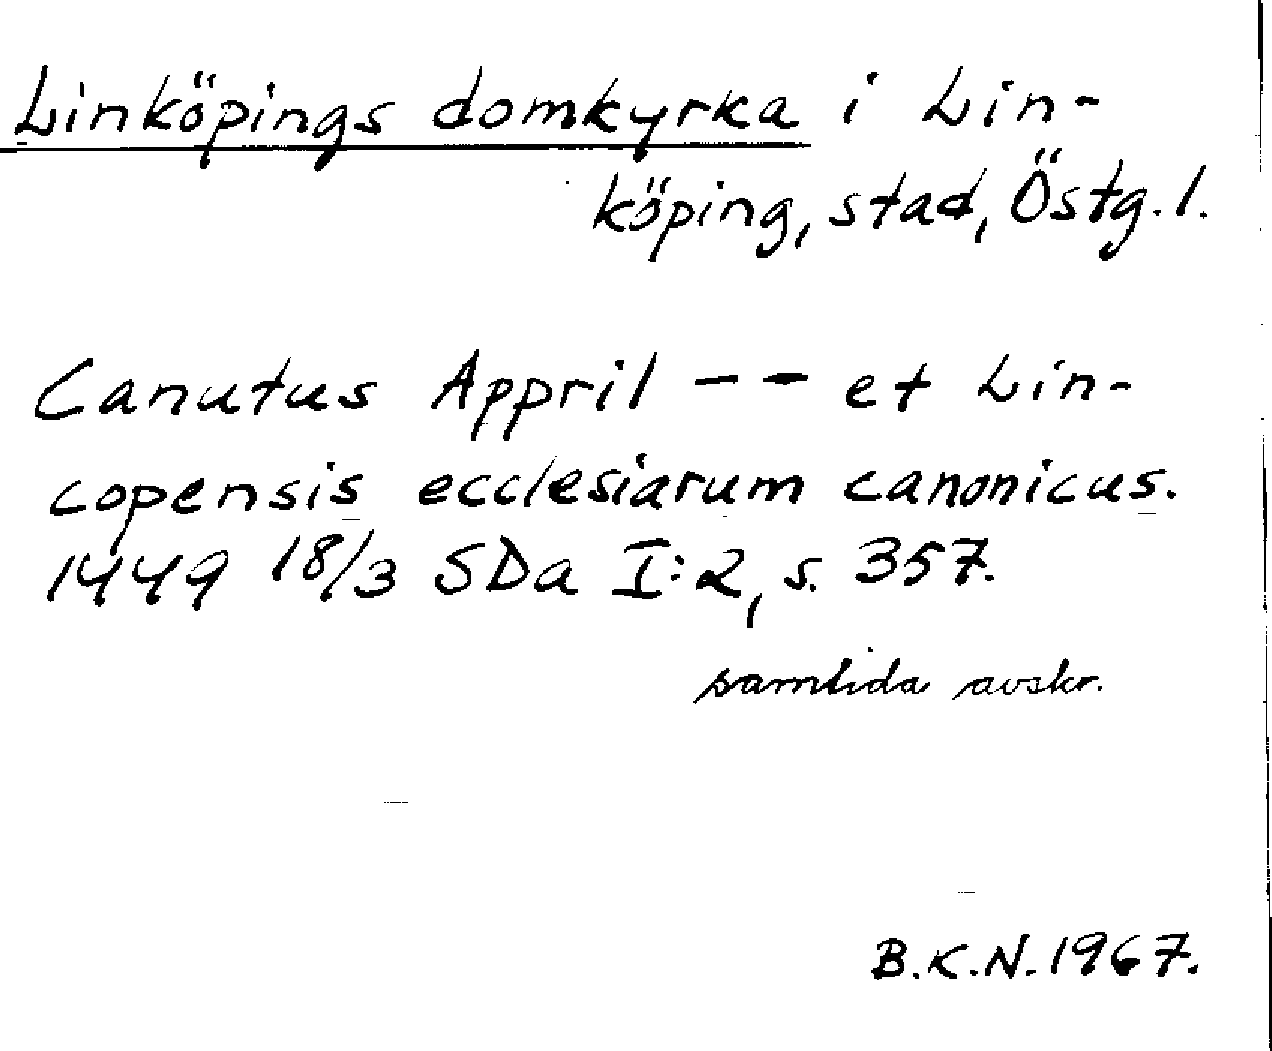 Linköpings domkyrka i Lin-
köping, stad, Östg. l.
Canutus Appril -- et Lin-
copensis ecclesiarum canonicus.
1449 18/3 SDa I:2, s. 357.
samtida avskr.
B.K.N. 1967.